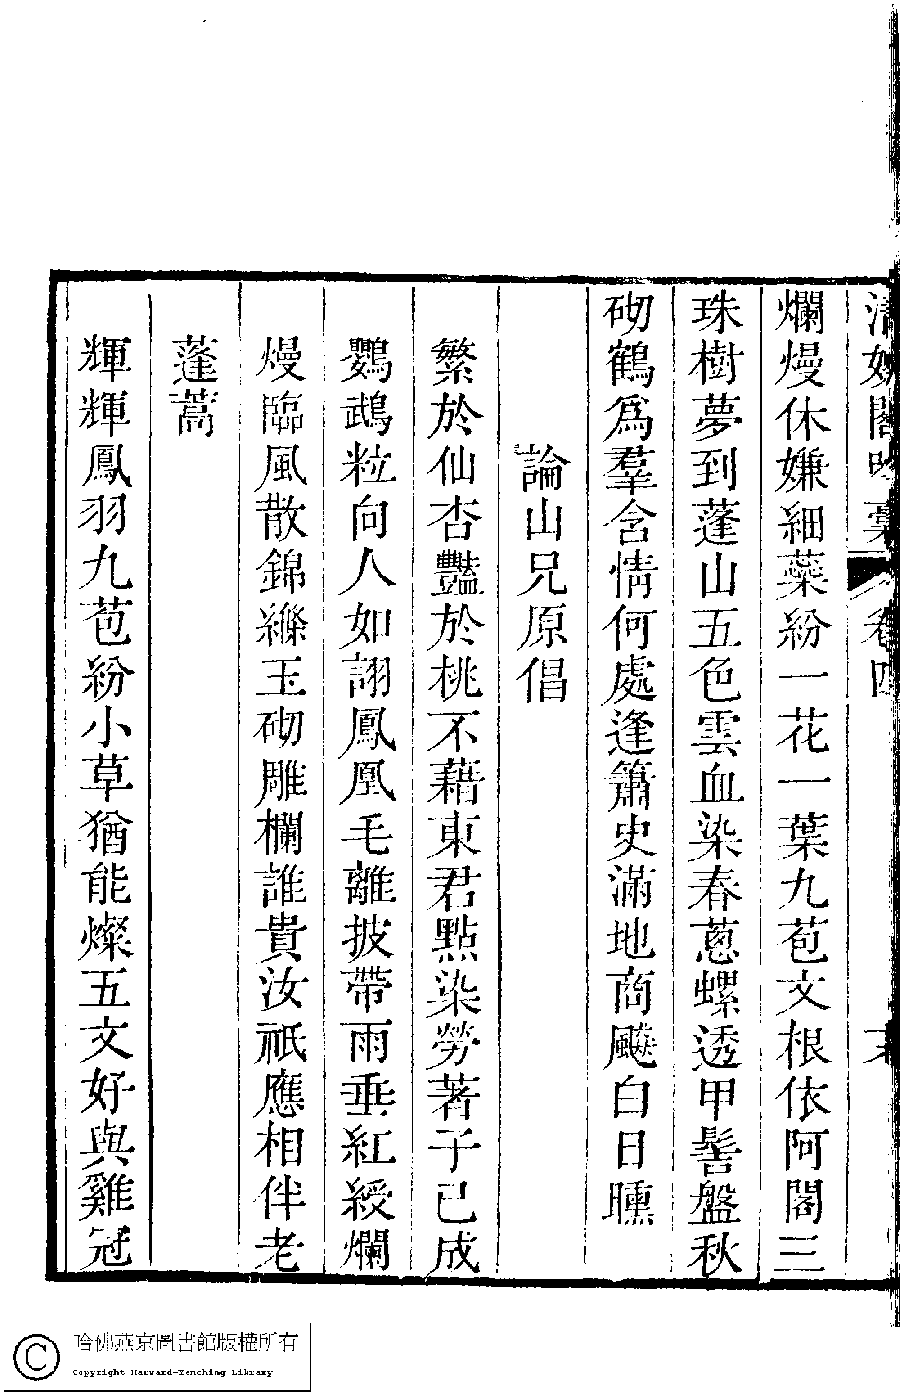 清娛閣吟藁 卷四
爛熳休嫌細蘂紛一花一葉九苞文根依阿閣三
珠樹夢到蓬山五色雲血染春蔥螺透甲髻盤秋
砌鶴爲羣含情何處逢簫史滿地商飈白日曛
論山兄原倡
繁於仙杏豔於桃不藉東君點染勞著子已成
鸚鵡粒向人如詡鳳凰毛離披帶雨垂紅綬爛
熳臨風散錦縧玉砌雕欄誰貴汝祇應相伴老
蓬蒿
輝輝鳳羽九苞紛小草猶能燦五文好與雞冠
哈佛燕京圖書館版權所有
Copyright Harvard-Yenching Library